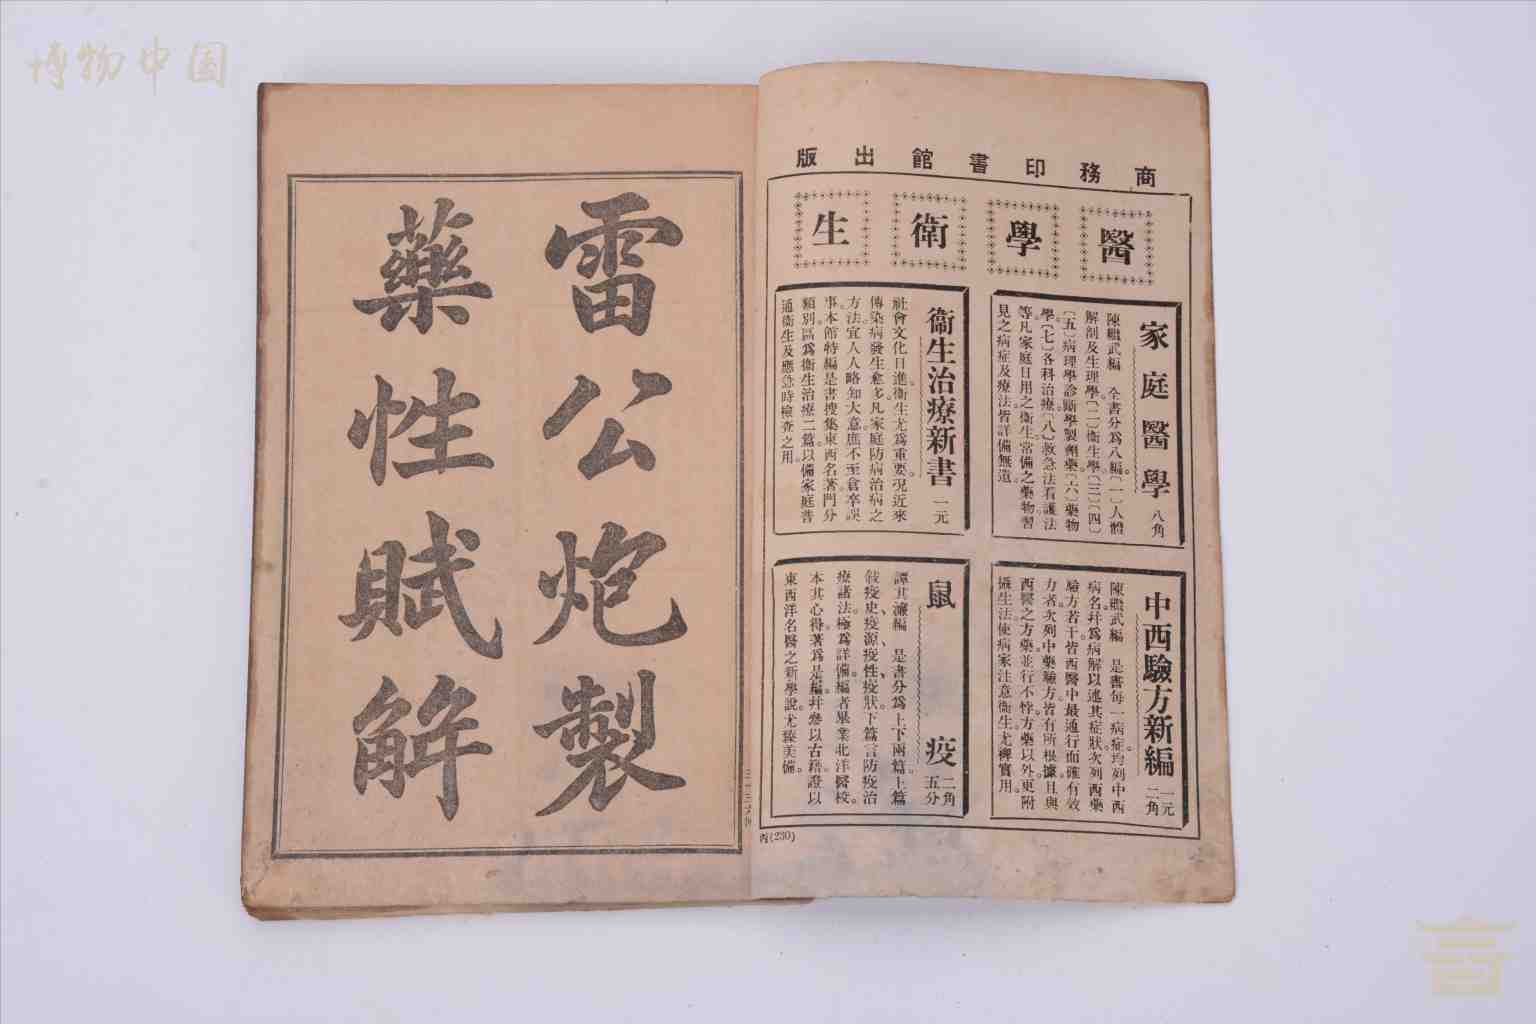 博物中国
商務印書館出版
醫學衛生
家庭醫學 八角
陳繼武編 全書分為八編。〔一〕人體
解剖及生理學。〔二〕衛生學。〔三〕〔四〕
〔五〕病理學診斷學製劑藥。〔六〕藥物
學。〔七〕各科治療。〔八〕救急法看護法
等。凡家庭日用之衛生常備之藥物習
見之病症及療法。皆詳備無遺。
衛生治療新書 一元
社會文化日進。衛生尤為重要。況近來
傳染病發生愈多。凡家庭防病治病之
方法。宜人人略知大意。庶不至倉卒誤
事。本館特編是書。搜集東西名著。門分
類別。區為衛生治療二篇。以備家庭普
通衛生及應急時檢查之用。
中西驗方新編 一元二角
陳繼武編 是書每一病症。均列中西
病名。幷為病解以述其症狀。次列西藥
驗方若干。皆西醫中最通行而確有效
力者。次列中藥驗方。皆有所根據。且與
西醫之方藥並行不悖。方藥以外。更附
攝生法。使病家注意衛生。尤裨實用。
鼠疫 二角五分
譚其濂編 是書分為上下兩篇。上篇
敍疫史、疫源、疫性、疫狀。下篇言防疫治
療諸法。極為詳備。編者畢業北洋醫校。
本其心得。著為是編。幷參以古籍。證以
東西洋名醫之新學說。尤臻美備。
丙(230)
雷公炮製
藥性賦解